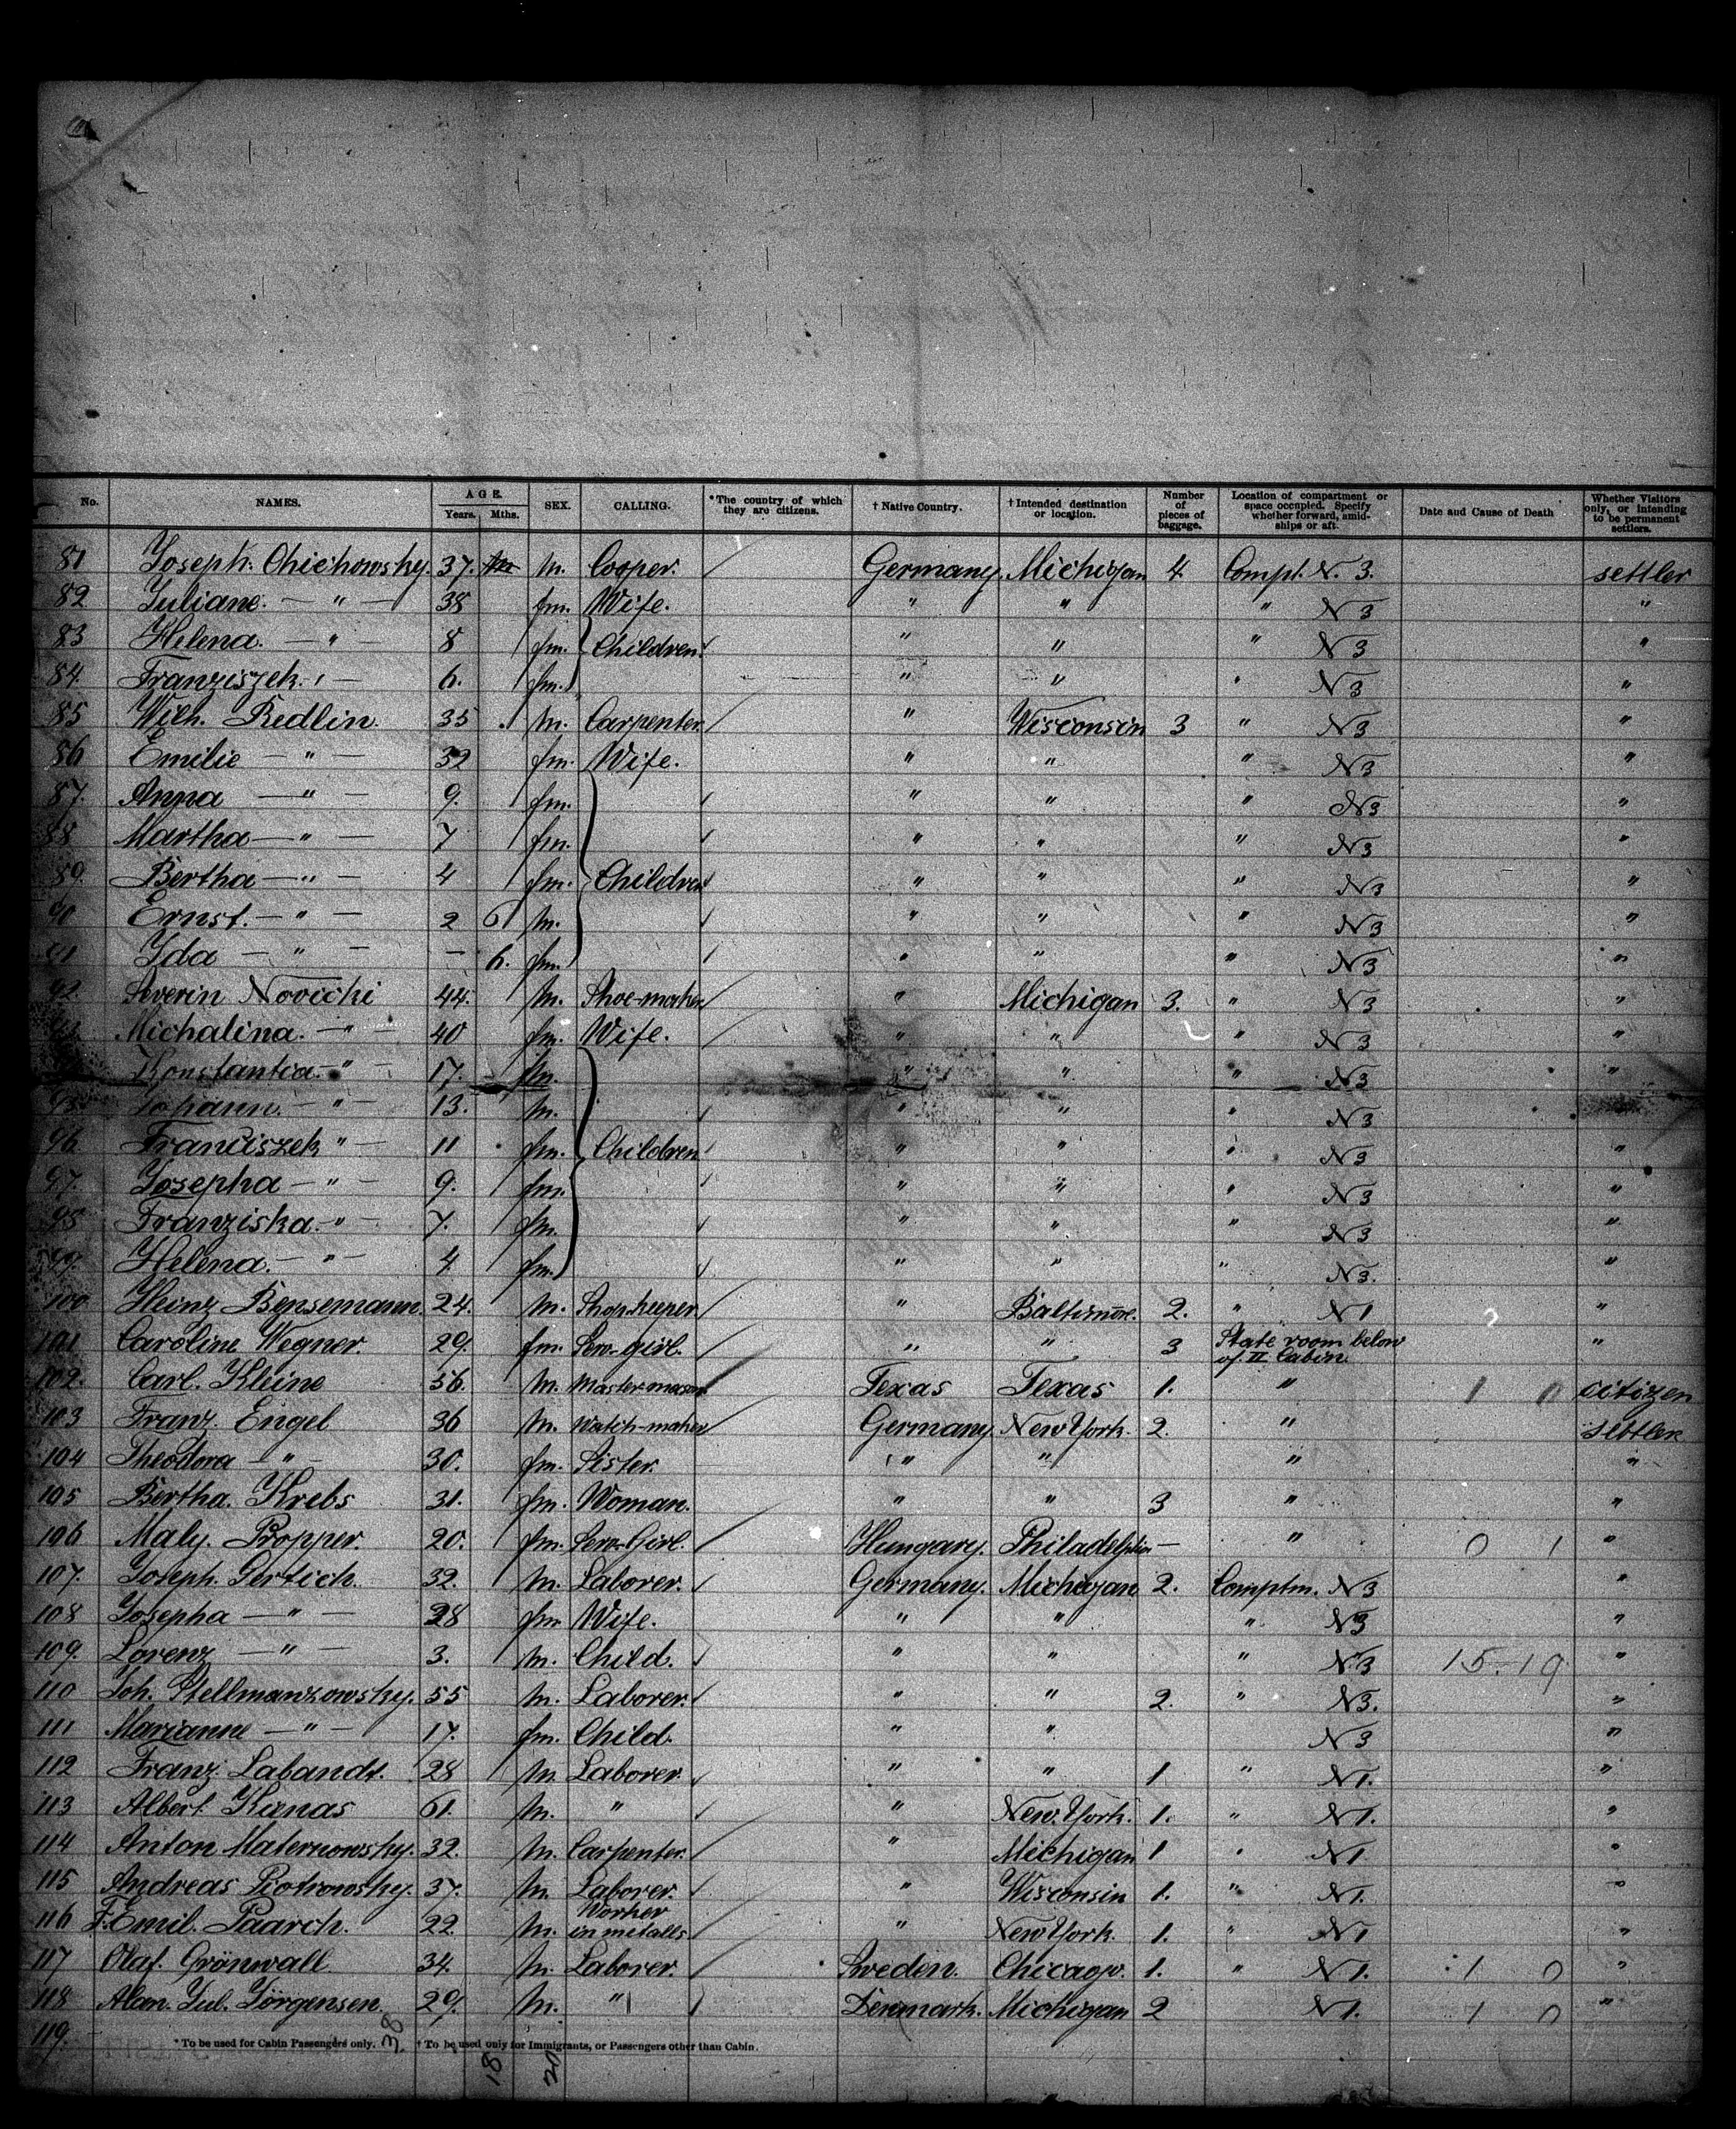 No. NAMES. AGE. Years. Mths. SEX. CALLING. *The country of which they are citizens. † Native Country. † Intended destination or location. Number of pieces of baggage. Location of compartment or space occupied. Specify whether forward, amidships or aft. Date and Cause of Death Whether Visitors only, or intending to be permanent settlers.
81 Joseph. Chichowsky. 37. m. Cooper. Germany. Michigan 4. Compt. N. 3. settler
82 Juliane. — " — 38 fm. Wife. " " " N 3 "
83 Helena. — " — 8 fm. Children. " " " N 3 "
84. Franziszek. " — 6. fm. " " " N 3 "
85 Wilh. Redlin. 35 m. Carpenter. " Wisconsin 3 " N 3 "
86 Emilie — " — 32 fm. Wife. " " " N 3 "
87. Anna — " — 9. fm. " " " N 3 "
88 Martha — " — 7 fm. " " " N 3 "
89. Bertha — " — 4 fm. Children " " " N 3 "
90 Ernst. — " — 2 6 m. " " " N 3 "
91 Ida — " — — 6. fm. " " " N 3 "
92. Severin Novicki 44. m. Shoe-maker " Michigan 3. " N 3 "
93. Michalina. — " — 40 fm. Wife. " " " N 3 "
Konstantia. " — 17. fm. " " " N 3 "
95. Johann. — " — 13. m. " " " N 3
96 Franciszek " — 11 fm. Children " " " N 3 "
97. Josepha — " — 9. fm. " " " N 3 "
98 Franziska. " — 7. fm. " " " N 3 "
99. Helena. — " — 4. fm. " " " N 3. "
100 Heinz Bensemann. 24. m. Shop-keeper " Baltimore. 2. " N 1 "
101 Caroline Wegner. 29. fm. Serv-girl. " " 3 State room below of II Cabin. "
102. Carl. Kleine 56. m. Master-mason. Texas Texas 1. " 1 0 citizen
103 Franz. Engel 36 m. Watch-maker Germany. New York. 2. " settler
104 Theodora — " — 30. fm. Sister. " " " "
105 Bertha. Krebs 31. fm. Woman. " " 3 " "
106 Maly. Propper. 20. fm. Serv-Girl. Hungary. Philadelphia — " 0 1 "
107. Joseph. Gertich. 32. m. Laborer. Germany. Michigan 2. Comptm. N 3 "
108 Josepha — " — 28 fm. Wife. " " " N 3 "
109. Lorenz — " — 3. m. Child. " " " N 3 15-19 "
110 Joh. Stellmanzowsky. 55 m. Laborer. " " 2. " N 3. "
111 Marianne — " — 17. fm. Child. " " N 3 "
112 Franz. Labandt. 28 m. Laborer. " " 1 " N 1. "
113 Albert. Kanas 61. m. " " New York. 1. " N 1. "
114 Anton Maternowsky. 32. m. Carpenter. " Michigan 1 " N 1. "
115 Andreas Piotrowsky. 37. m. Laborer. " Wisconsin 1. " N 1. "
116 F. Emil. Paarch. 22. m. Worker in metalls " New York. 1. " N 1 "
117 Olaf. Grönwall 34. m. Laborer. Sweden. Chicago. 1. " N 1. 1 0 "
118 Alan. Jul. Jörgensen. 29. m. " Denmark. Michigan 2 N 1. 1 0 "
119.
* To be used for Cabin Passengers only. 38 † To be used only for Immigrants, or Passengers other than Cabin.
18 20